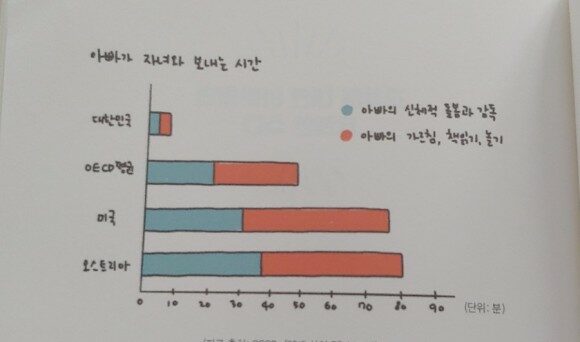 아빠가 자녀와 보내는 시간
아빠의 신체적 돌봄과 감독
아빠의 가르침, 책읽기, 놀기
대한민국
OECD평균
미국
오스트리아
0 10 20 30 40 50 60 70 80 90 (단위: 분)